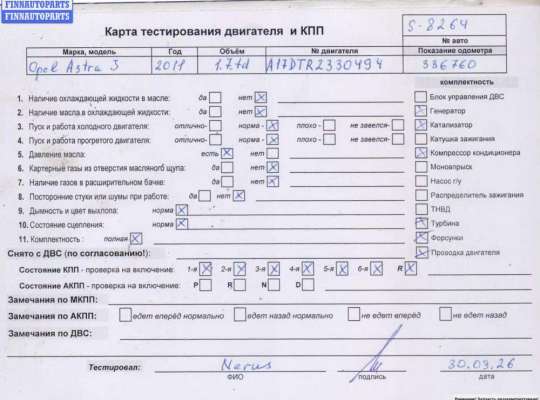 FINNAUTOPARTS
FINNAUTOPARTS
Карта тестирования двигателя и КПП
S-8264
№ авто
Марка, модель Год Объём № двигателя Показание одометра
Opel Astra J 2011 1.7td A17DTR2330494 336760
комплектность
1. Наличие охлаждающей жидкости в масле: да нет
2. Наличие масла в охлаждающей жидкости: да нет
3. Пуск и работа холодного двигателя: отлично- норма - плохо - не завелся-
4. Пуск и работа прогретого двигателя: отлично- норма - плохо - не завелся-
5. Давление масла: есть нет
6. Картерные газы из отверстия масляного щупа: да нет
7. Наличие газов в расширительном бачке: да нет
8. Посторонние стуки или шумы при работе: да нет
9. Дымность и цвет выхлопа: норма
10. Состояние сцепления: норма
11. Комплектность : полная
Блок управления ДВС
Генератор
Катализатор
Катушка зажигания
Компрессор кондиционера
Моновпрыск
Насос г/у
Распределитель зажигания
ТНВД
Турбина
Форсунки
Проводка двигателя
Снято с ДВС (по согласованию!):
Состояние КПП - проверка на включение: 1-я 2-я 3-я 4-я 5-я 6-я R
Состояние АКПП - проверка на включение: P R N D
Замечания по МКПП:
Замечания по АКПП: едет вперёд нормально едет назад нормально не едет вперёд не едет назад
Замечания по ДВС:
Тестировал: Nerus 30.03.26
ФИО подпись дата